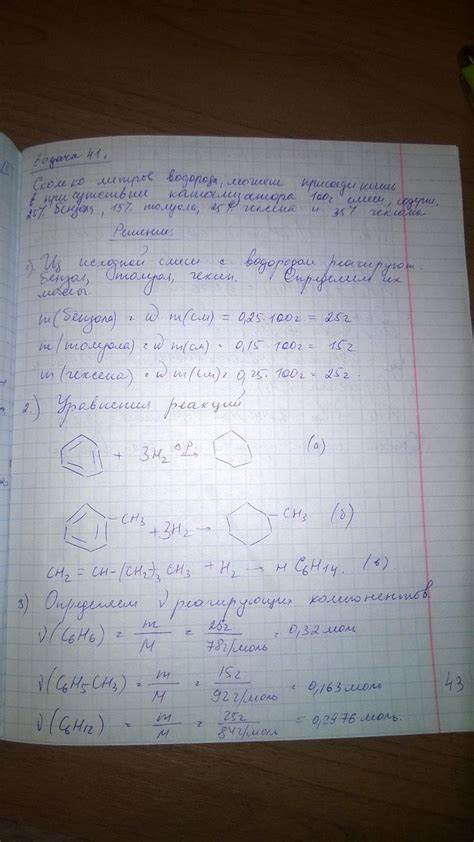 Задача 41.
Сколько литров водорода, может присоединить
в присутствии катализатора 100г смеси, содерж.
25% бензола, 15% толуола, 25% гексена и 35% гексана
Решение:
Из исходной смеси с водородом реагируют
бензол, толуол, гексен. Определим их
массы
m(бензола) = ω m(см) = 0,25·100г = 25г
m(толуола) = ω m(см) = 0,15·100г = 15г
m(гексена) = ω m(см) = 0,25·100г = 25г
2.) Уравнения реакций
+ 3H2 → (а)
CH3 + 3H2 → CH3 (б)
CH2 = CH-(CH2)3 CH3 + H2 → н C6H14. (в)
3) Определяем ν реагирующих компонентов
ν(C6H6) = m/M = 25г/78г/моль = 0,32моль
ν(C6H5CH3) = m/M = 15г/92г/моль = 0,163моль
43
ν(C6H12) = m/M = 25г/84г/моль = 0,2976моль.